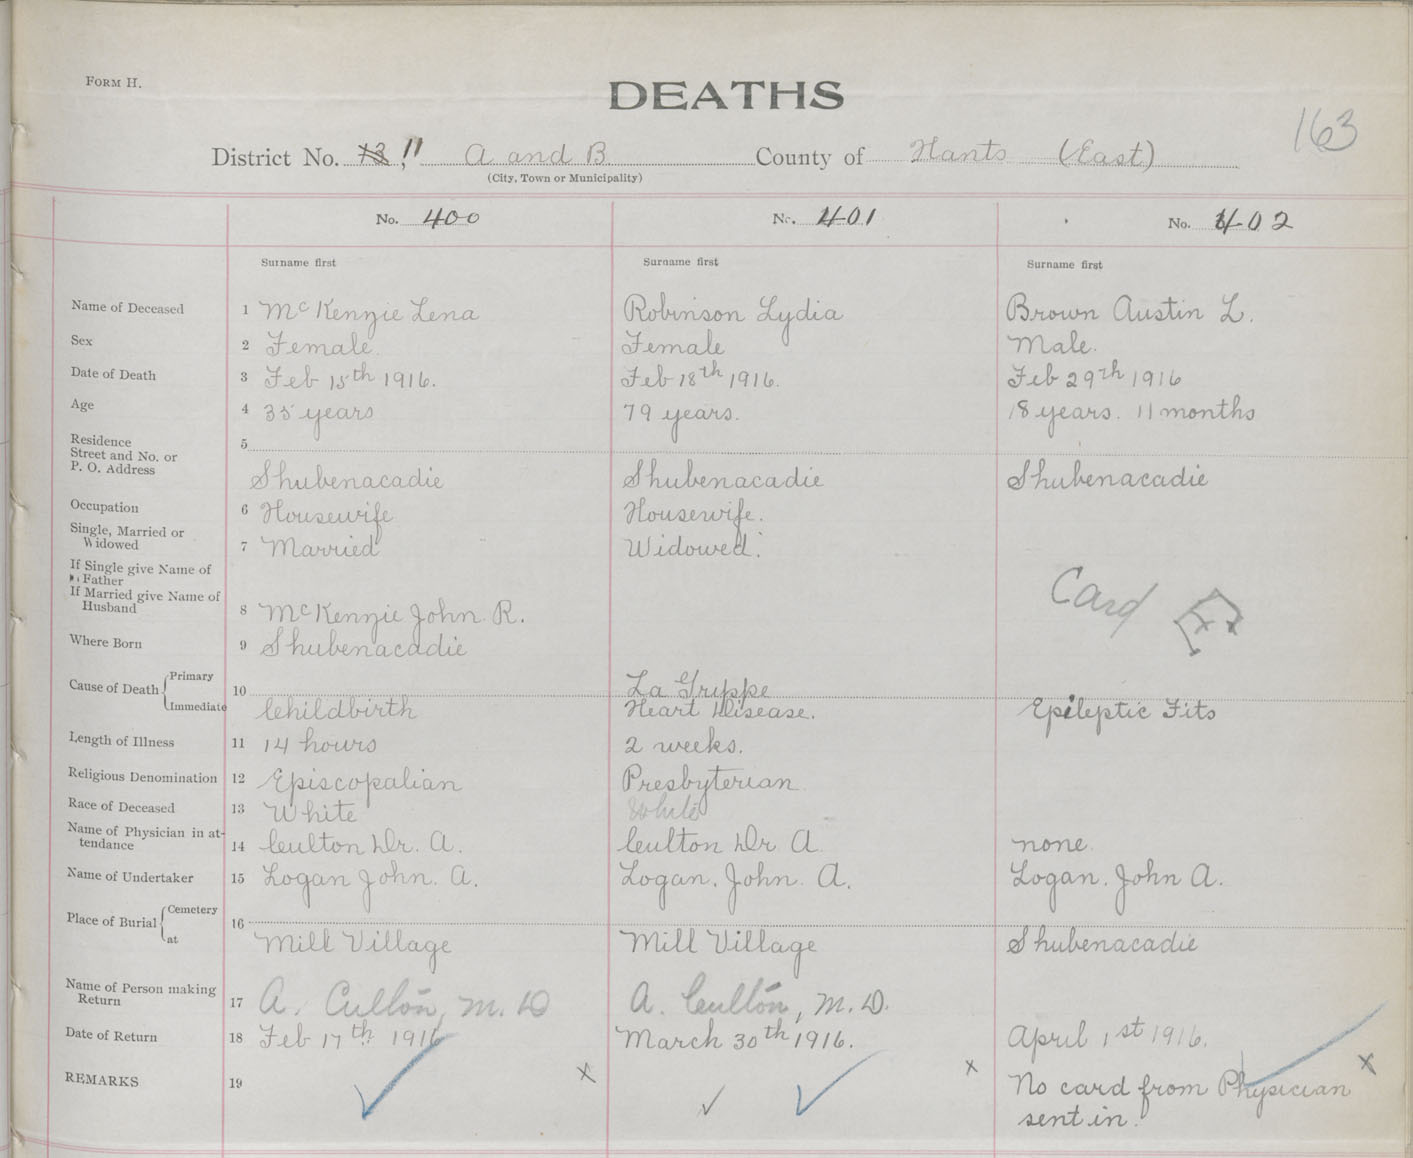 FORM H.
DEATHS
163
District No. 13 11 A and B County of Hants (East)
(City, Town or Municipality)
No. 400 No. 401 No. 402
Surname first Surname first Surname first
Name of Deceased 1 McKenzie Lena Robinson Lydia Brown Austin L.
Sex 2 Female. Female Male.
Date of Death 3 Feb 15th 1916. Feb 18th 1916. Feb 29th 1916
Age 4 35 years 79 years. 18 years. 11 months
Residence 5
Street and No. or
P. O. Address Shubenacadie Shubenacadie Shubenacadie
Occupation 6 Housewife Housewife.
Single, Married or
Widowed 7 Married Widowed.
If Single give Name of
Father
If Married give Name of
Husband 8 McKenzie John R.
Card
Where Born 9 Shubenacadie
Cause of Death Primary 10 La Grippe
Immediate Childbirth Heart Disease. Epileptic Fits
Length of Illness 11 14 hours 2 weeks.
Religious Denomination 12 Episcopalian Presbyterian
Race of Deceased 13 White White
Name of Physician in at-
tendance 14 Culton Dr. A. Culton Dr A. none.
Name of Undertaker 15 Logan John. A. Logan. John. A. Logan. John A.
Place of Burial Cemetery 16
at Mill Village Mill Village Shubenacadie
Name of Person making
Return 17 A. Culton, M.D A. Culton, M.D.
Date of Return 18 Feb 17th 1916 March 30th 1916. April 1st 1916.
REMARKS 19 x x No card from Physician x
sent in.